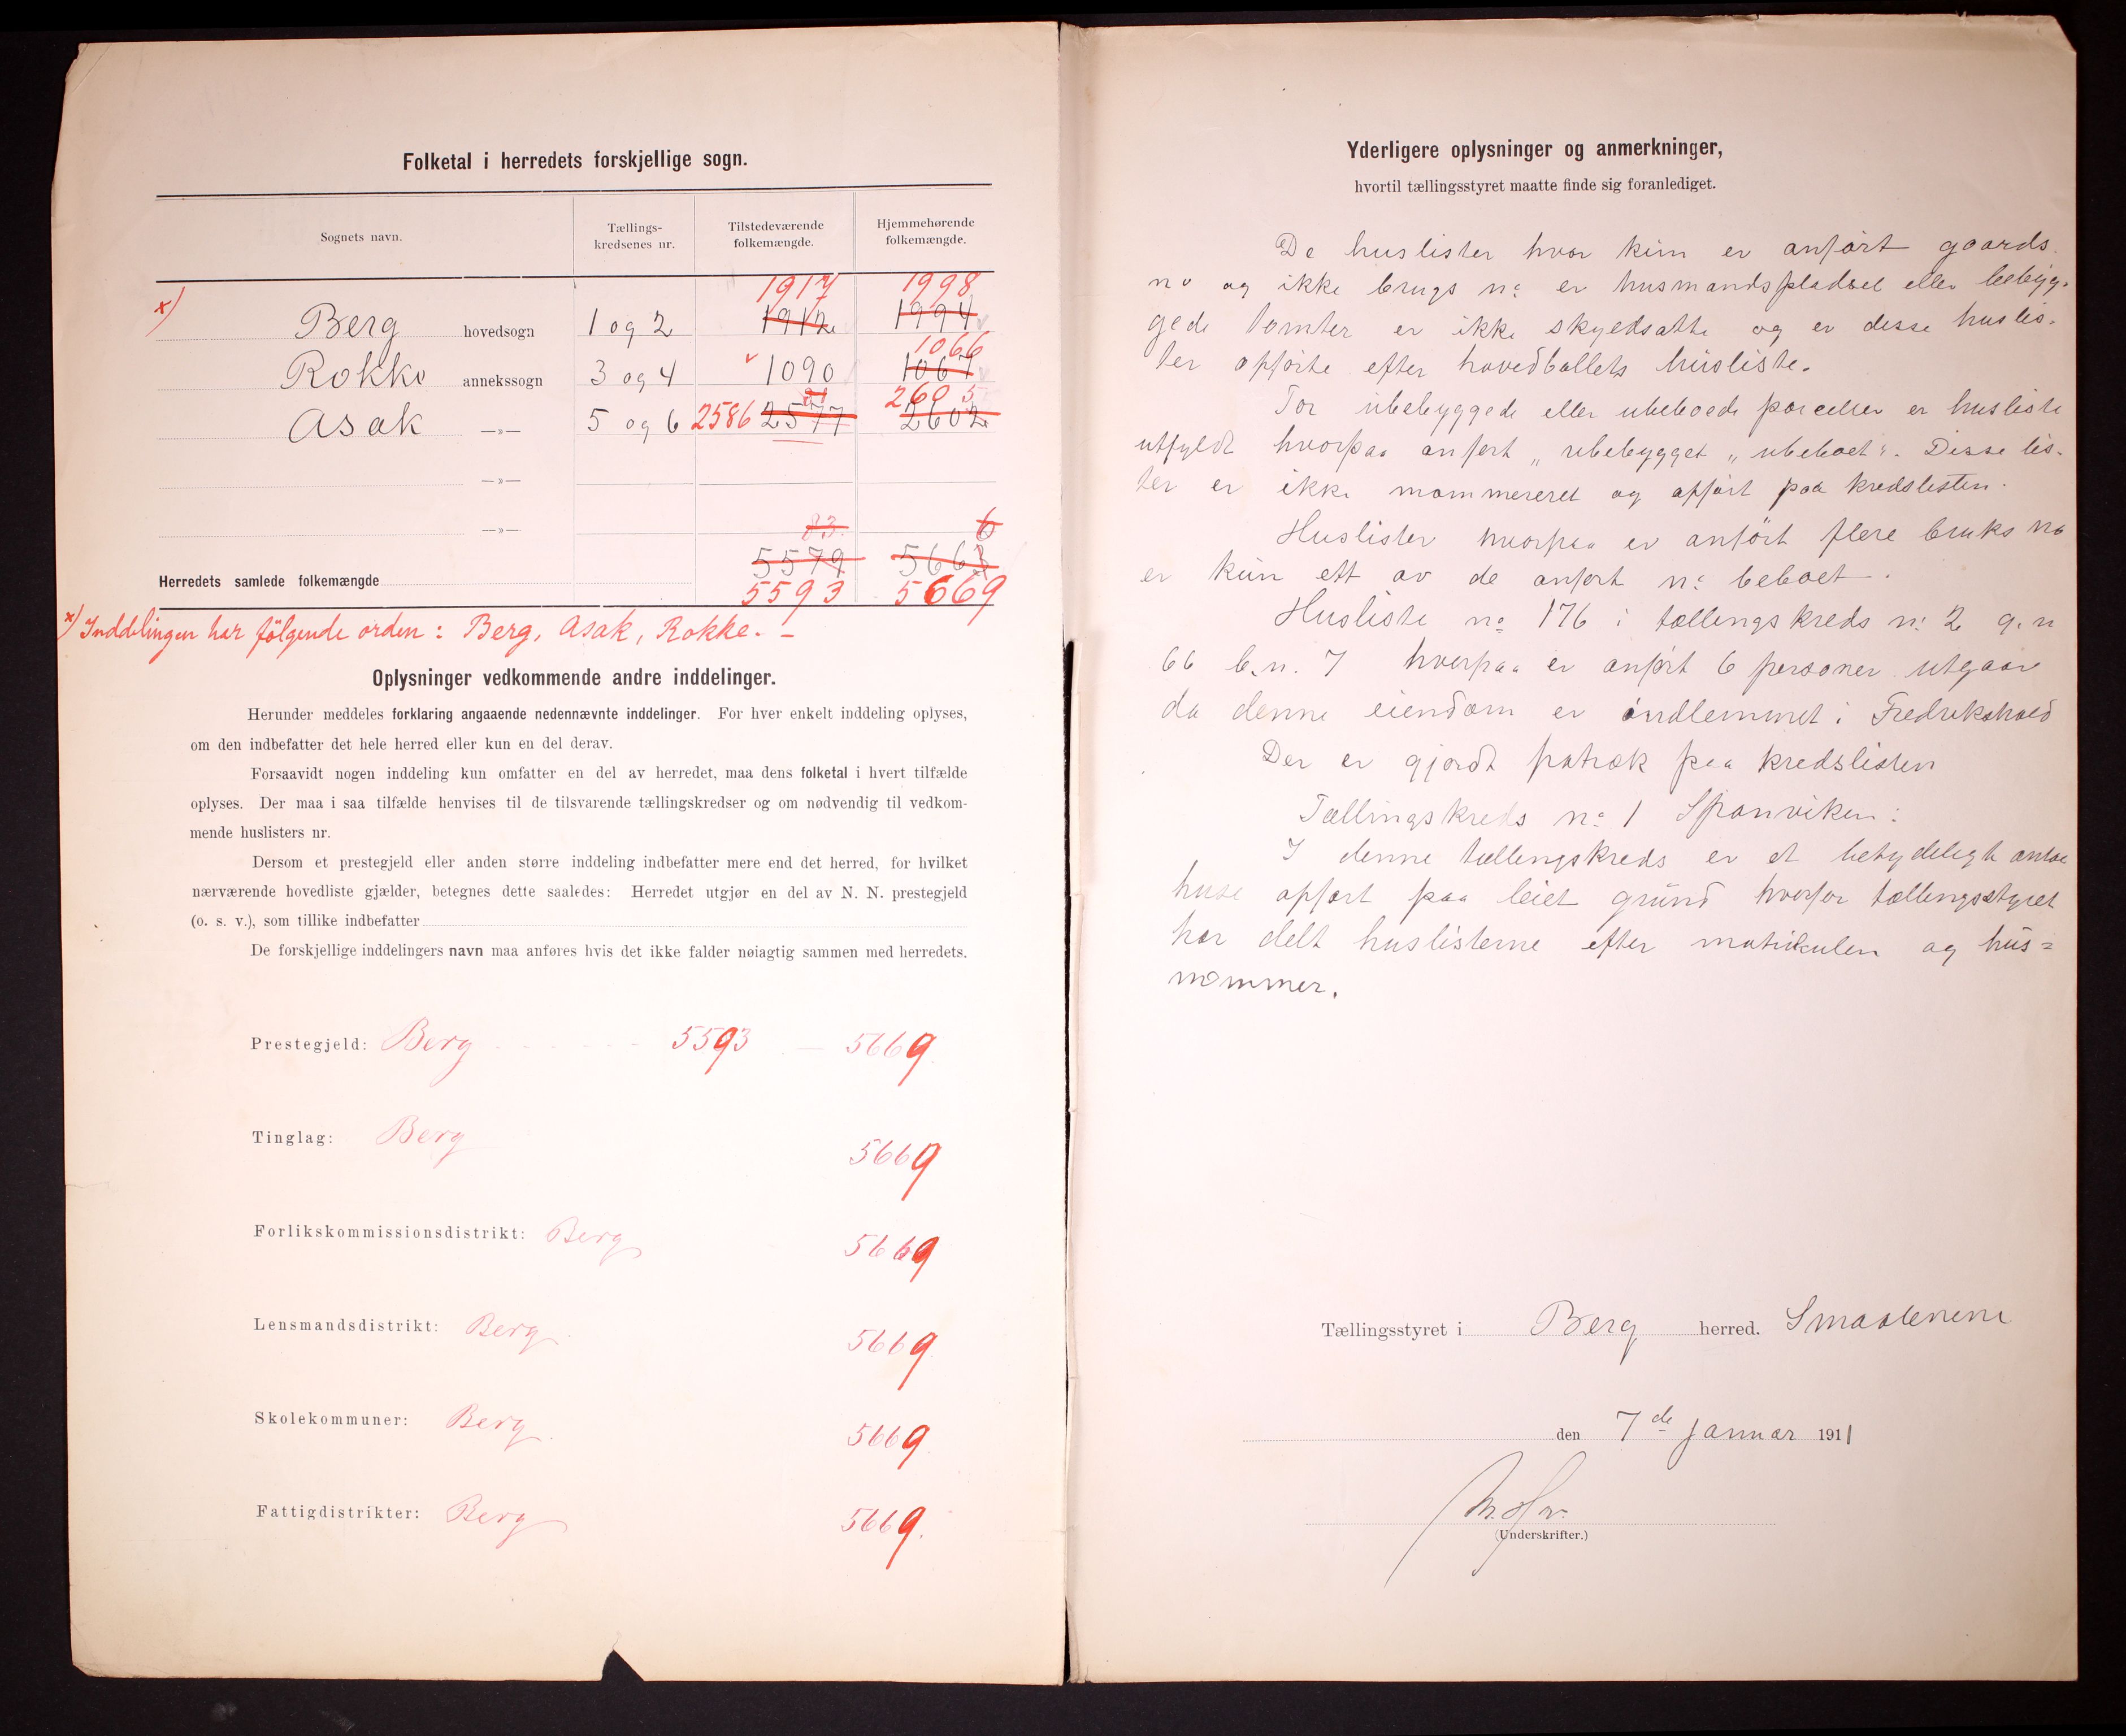 Folketal i herredets forskjellige sogn.
Sognets navn.
Tællings-
kredsenes nr.
Tilstedeværende
folkemængde.
Hjemmehørende
folkemængde.
1917 1998
x) Berg hovedsogn 1 og 2 1912 1994
1066
Rokke annekssogn 3 og 4 1090 1067
2605
Asak —»— 5 og 6 2586 2577 2602
—»—
—»—
83 6
5579 5663
Herredets samlede folkemængde
5593 5669
x) Inddelingen har følgende orden: Berg, Asak, Rokke. —
Oplysninger vedkommende andre inddelinger.
Herunder meddeles forklaring angaaende nedennævnte inddelinger. For hver enkelt inddeling oplyses,
om den indbefatter det hele herred eller kun en del derav.
Forsaavidt nogen inddeling kun omfatter en del av herredet, maa dens folketal i hvert tilfælde
oplyses. Der maa i saa tilfælde henvises til de tilsvarende tællingskredser og om nødvendig til vedkom-
mende huslisters nr.
Dersom et prestegjeld eller anden større inddeling indbefatter mere end det herred, for hvilket
nærværende hovedliste gjælder, betegnes dette saaledes: Herredet utgjør en del av N. N. prestegjeld
(o. s. v.), som tillike indbefatter
De forskjellige inddelingers navn maa anføres hvis det ikke falder nøiagtig sammen med herredets.
Prestegjeld: Berg 5593 — 5669
Tinglag: Berg 5669
Forlikskommissionsdistrikt: Berg 5669
Lensmandsdistrikt: Berg 5669
Skolekommuner: Berg 5669
Fattigdistrikter: Berg 5669.
Yderligere oplysninger og anmerkninger,
hvortil tællingsstyret maatte finde sig foranlediget.
De huslister hvor kun er anført gaards
no og ikke brugs no er husmandspladser eller bebyg-
gede tomter er ikke skyldsatte og er disse huslis-
ter opførte efter hovedbøllets husliste.
For ubebyggede eller ubeboede parceller er husliste
utfyldt hvorpaa anført „ubebygget „ubeboet". Disse lis-
ter er ikke nommereret og opført paa kredslisten.
Huslister hvorpaa er anført flere bruks no
er kun ett av de anført no beboet.
Husliste no 176 i tællingskreds no 2 g. n
66 b. n. 7 hvorpaa er anført 6 personer utgaar
da denne eiendom er indlemmet i Fredrikshald
Der er gjordt fratræk paa kredslisten
Tællingskreds no 1 Sponviken:
I denne tællingskreds er et betydeligt antal
huse opført paa leiet grund hvorfor tællingsstyret
har delt huslisterne efter matrikulen og hus=
nommer.
Tællingsstyret i Berg herred. Smaalenene
den 7de Januar 1911
(Underskrifter.)